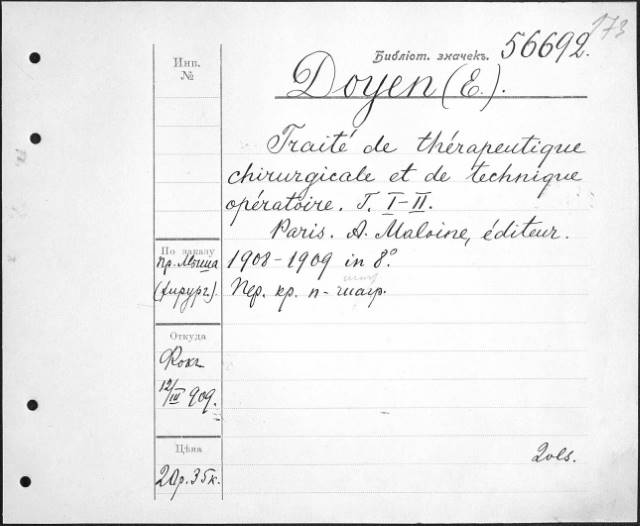 173
Библіот. значекъ. 56692.
Инв.
№
Doyen (E.).
Traité de thérapeutique
chirurgicale et de technique
opératoire. T. I-II.
Paris. A. Maloine, éditeur.
По заказу
пр. Мыша
(хирург.).
1908-1909 in 8°.
Пер. кр. п-шагр.
Откуда
Фокъ
12/III 909.
Цѣна
20р.35к.
2 vls.